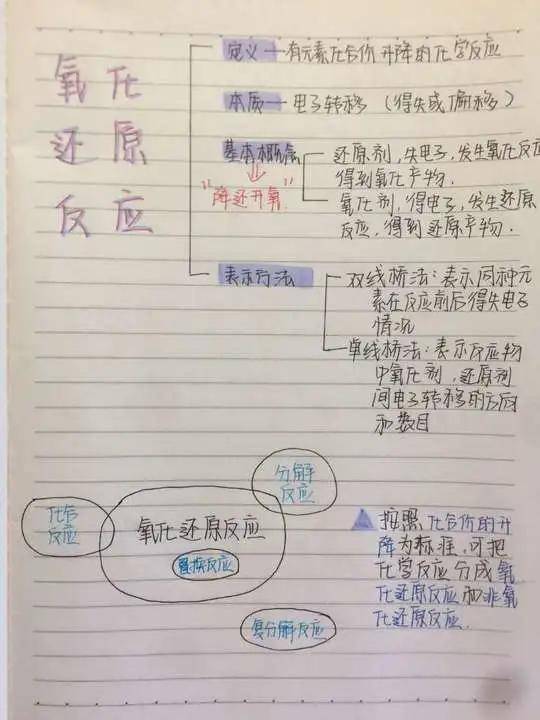 氧化
还原
反应
定义—有元素化合价升降的化学反应
本质—电子转移（得失或偏移）
基本概念
"降还升氧"
还原剂,失电子,发生氧化反应
得到氧化产物.
氧化剂,得电子,发生还原
反应,得到还原产物.
表示方法
双线桥法:表示同种元
素在反应前后得失电子
情况
单线桥法:表示反应物
中氧化剂,还原剂
间电子转移的方向
和数目
分解
反应
化合
反应
氧化还原反应
置换反应
复分解反应
按照化合价的升
降为标准,可把
化学反应分成氧
化还原反应和非氧
化还原反应.